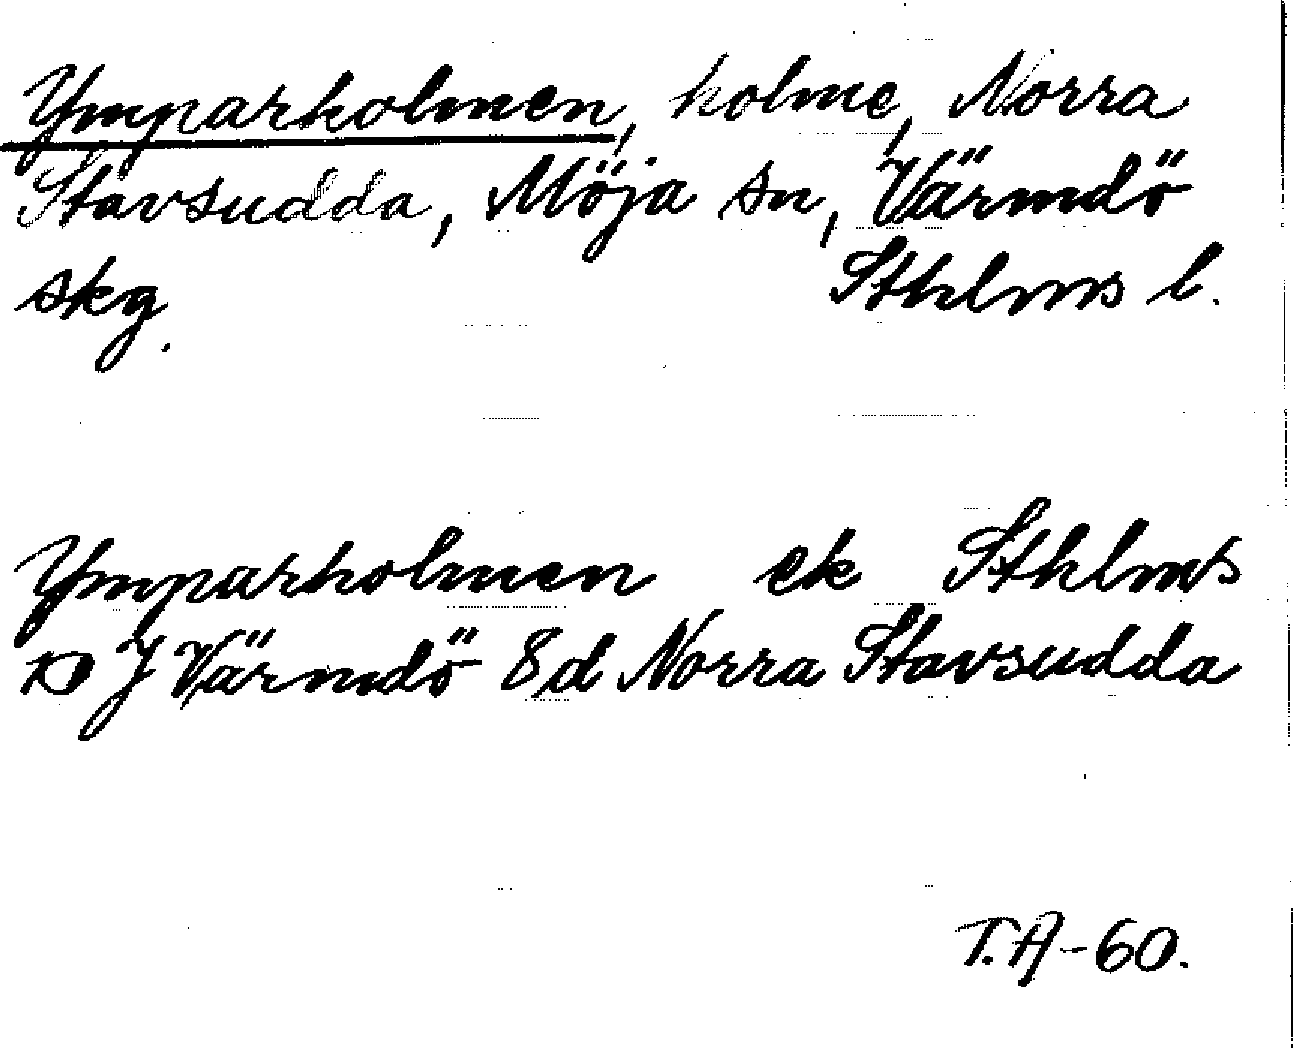 Ymparholmen, holme, Norra
Stavsudda, Möja sn, Värmdö
skg. Sthlms l.
Ymparholmen ek Sthlms
J Värmdö 8d Norra Stavsudda
T.A-60.